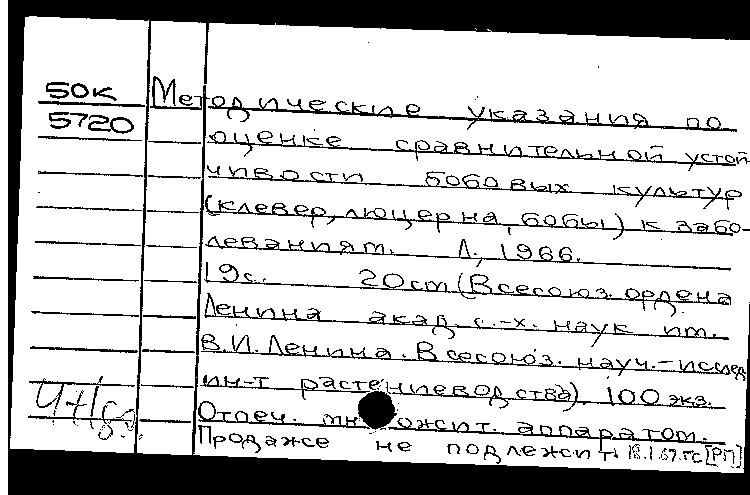 50К
5720
Методические указания по
оценке сравнительной устой
чивости бобовых культур
(клевер, люцерна, бобы) к забо-
леваниям. Л., 1966.
19с. 20см (Всесоюз. ордена
Ленина акад. с.-х. наук им.
В.И. Ленина. Всесоюз. науч.-исслед
ин-т растениеводства). 100 экз.
Отпеч. множит. аппаратом.
Продаже не подлежит. 18.1.67. [РП]